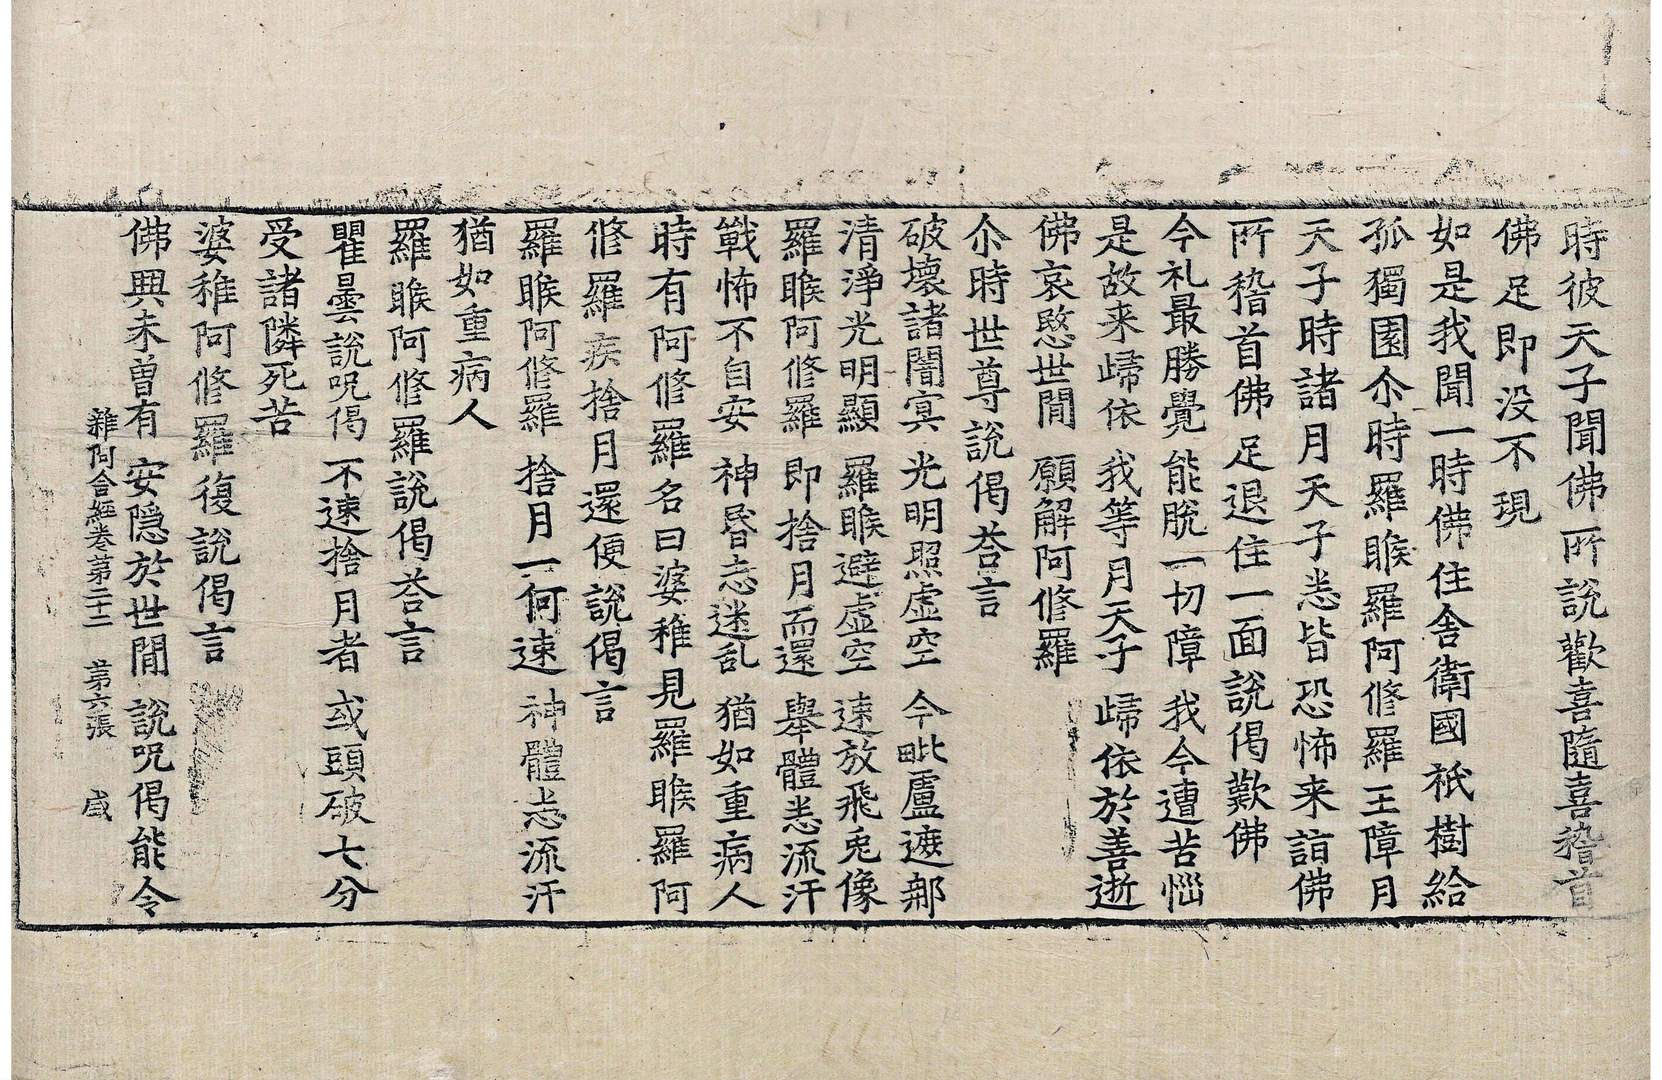 時彼天子聞佛所說歡喜隨喜稽首
佛足即没不現
如是我聞一時佛住舍衛國祇樹給
孤獨園尒時羅睺羅阿修羅王障月
天子時諸月天子悉皆恐怖来詣佛
所稽首佛足退住一面說偈歎佛
今礼最勝覺 能脫一切障 我今遭苦惱
是故来歸依 我等月天子 歸依於善逝
佛哀愍世間 願解阿修羅
尒時世尊說偈荅言
破壞諸闇冥 光明照虛空 今毗盧遮那
清淨光明顯 羅睺避虛空 速放飛兎像
羅睺阿修羅 即捨月而還 舉體悉流汗
戰怖不自安 神昏志迷乱 猶如重病人
時有阿修羅名曰婆稚見羅睺羅阿
修羅疾捨月還便說偈言
羅睺阿修羅 捨月一何速 神體悉流汗
猶如重病人
羅睺阿修羅說偈荅言
瞿曇說呪偈 不速捨月者 或頭破七分
受諸隣死苦
婆稚阿修羅復說偈言
佛興未曾有 安隱於世間 說呪偈能令
雜阿含經卷第二十二 第六張 盛